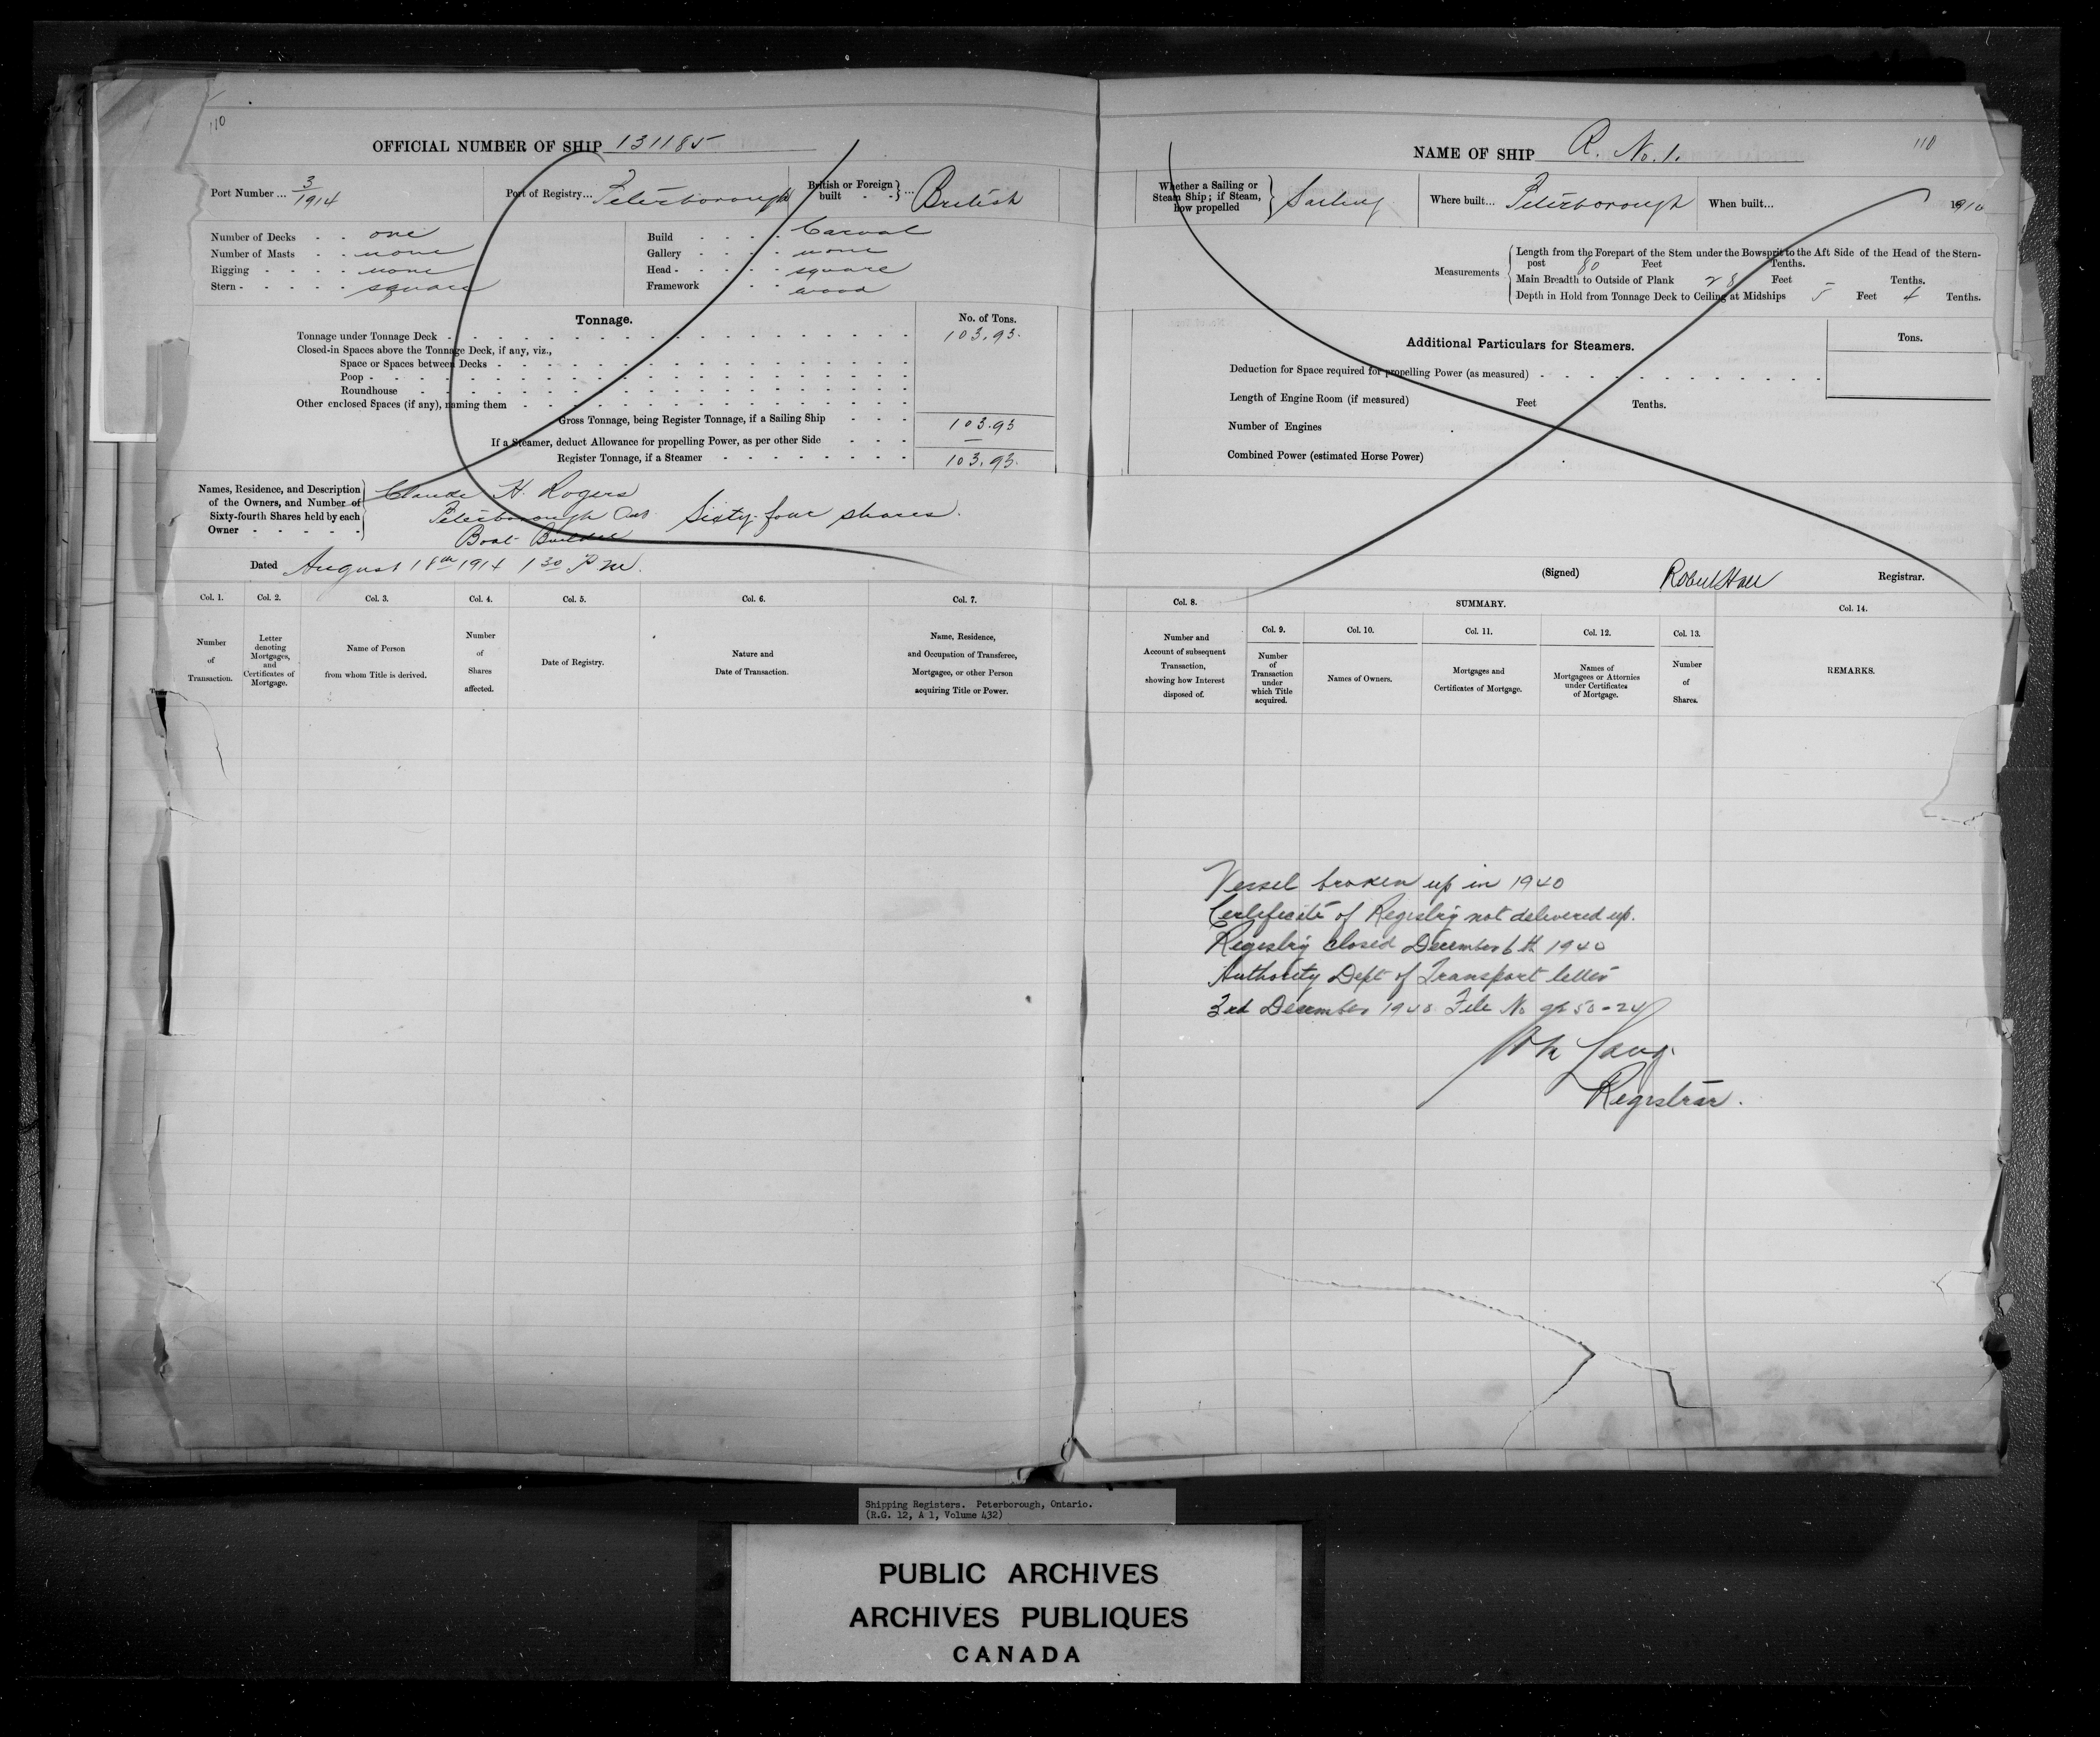 110
OFFICIAL NUMBER OF SHIP 131185
Port Number ... 3/1914
Port of Registry... Peterborough
British or Foreign built } ... British
Number of Decks . . one
Number of Masts . . none
Rigging . . . . none
Stern . . . . . square
Build . . . . Carval
Gallery . . . . none
Head . . . . . square
Framework . . wood
Tonnage.
No. of Tons.
Tonnage under Tonnage Deck 103.93.
Closed-in Spaces above the Tonnage Deck, if any, viz.,
Space or Spaces between Decks
Poop
Roundhouse
Other enclosed Spaces (if any), naming them
Gross Tonnage, being Register Tonnage, if a Sailing Ship 103.93
If a Steamer, deduct Allowance for propelling Power, as per other Side —
Register Tonnage, if a Steamer 103.93.
Names, Residence, and Description
of the Owners, and Number of
Sixty-fourth Shares held by each
Owner
Claude H. Rogers
Peterborough Ont. Sixty-four shares.
Boat Builder
Dated August 18th 1914 1 30 P.M.
Col. 1. Col. 2. Col. 3. Col. 4. Col. 5. Col. 6. Col. 7.
Number of Transaction.
Letter denoting Mortgages, and Certificates of Mortgage.
Name of Person from whom Title is derived.
Number of Shares affected.
Date of Registry.
Nature and Date of Transaction.
Name, Residence, and Occupation of Transferee, Mortgagee, or other Person acquiring Title or Power.
NAME OF SHIP R. No. 1.
110
Whether a Sailing or Steam Ship; if Steam, how propelled } Sailing
Where built... Peterborough
When built... 1914
Measurements
Length from the Forepart of the Stem under the Bowsprit to the Aft Side of the Head of the Stern-
post 80 Feet Tenths.
Main Breadth to Outside of Plank 28 Feet – Tenths.
Depth in Hold from Tonnage Deck to Ceiling at Midships 5 Feet 4 Tenths.
Additional Particulars for Steamers.
Tons.
Deduction for Space required for propelling Power (as measured)
Length of Engine Room (if measured) Feet Tenths.
Number of Engines
Combined Power (estimated Horse Power)
(Signed) Robert Hall Registrar.
Col. 8. SUMMARY. Col. 14.
Col. 9. Col. 10. Col. 11. Col. 12. Col. 13.
Number and Account of subsequent Transaction, showing how Interest disposed of.
Number of Transaction under which Title acquired.
Names of Owners.
Mortgages and Certificates of Mortgage.
Names of Mortgagees or Attornies under Certificates of Mortgage.
Number of Shares.
REMARKS.
Vessel broken up in 1940
Certificate of Registry not delivered up.
Registry closed December 6th 1940
Authority Dept of Transport letter
3rd December 1940 File No 50-24
Registrar.
Shipping Registers. Peterborough, Ontario.
(R.G. 12, A 1, Volume 432)
PUBLIC ARCHIVES
ARCHIVES PUBLIQUES
CANADA